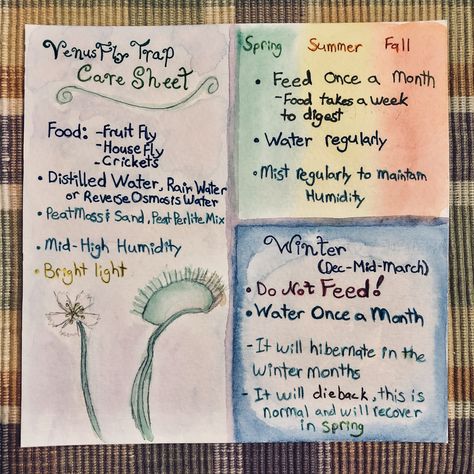 Venus Fly Trap
Care Sheet
Food: -Fruit Fly
-House Fly
-Crickets
• Distilled Water, Rain Water
or Reverse Osmosis Water
• Peat Moss & Sand, Peat Perlite Mix
• Mid-High Humidity
• Bright light
Spring Summer Fall
• Feed Once a Month
-Food takes a week
to digest
• Water regularly
• Mist regularly to maintain
Humidity
Winter
(Dec-Mid-March)
• Do Not Feed!
• Water Once a Month
- It will hibernate in the
winter months
- It will dieback, this is
normal and will recover
in Spring